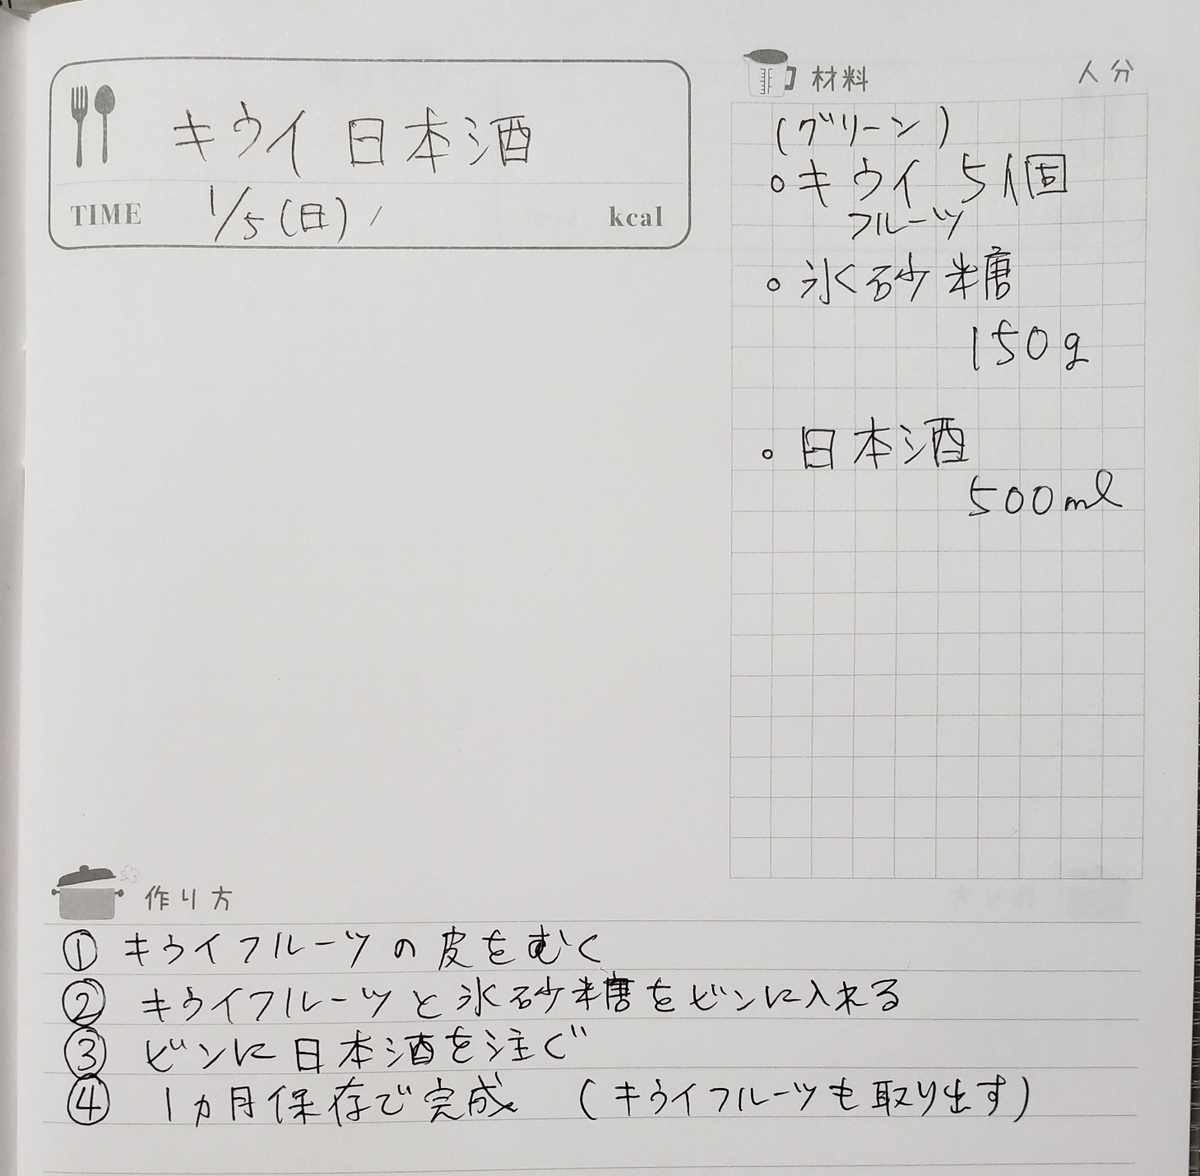 キウイ 日本酒
TIME 1/5(日) / kcal
材料 人分
(グリーン)
○キウイ 5個
フルーツ
○氷砂糖
150g
○日本酒
500ml
作り方
① キウイフルーツの皮をむく
② キウイフルーツと氷砂糖をビンに入れる
③ ビンに日本酒を注ぐ
④ 1ヵ月保存で完成 (キウイフルーツも取り出す)